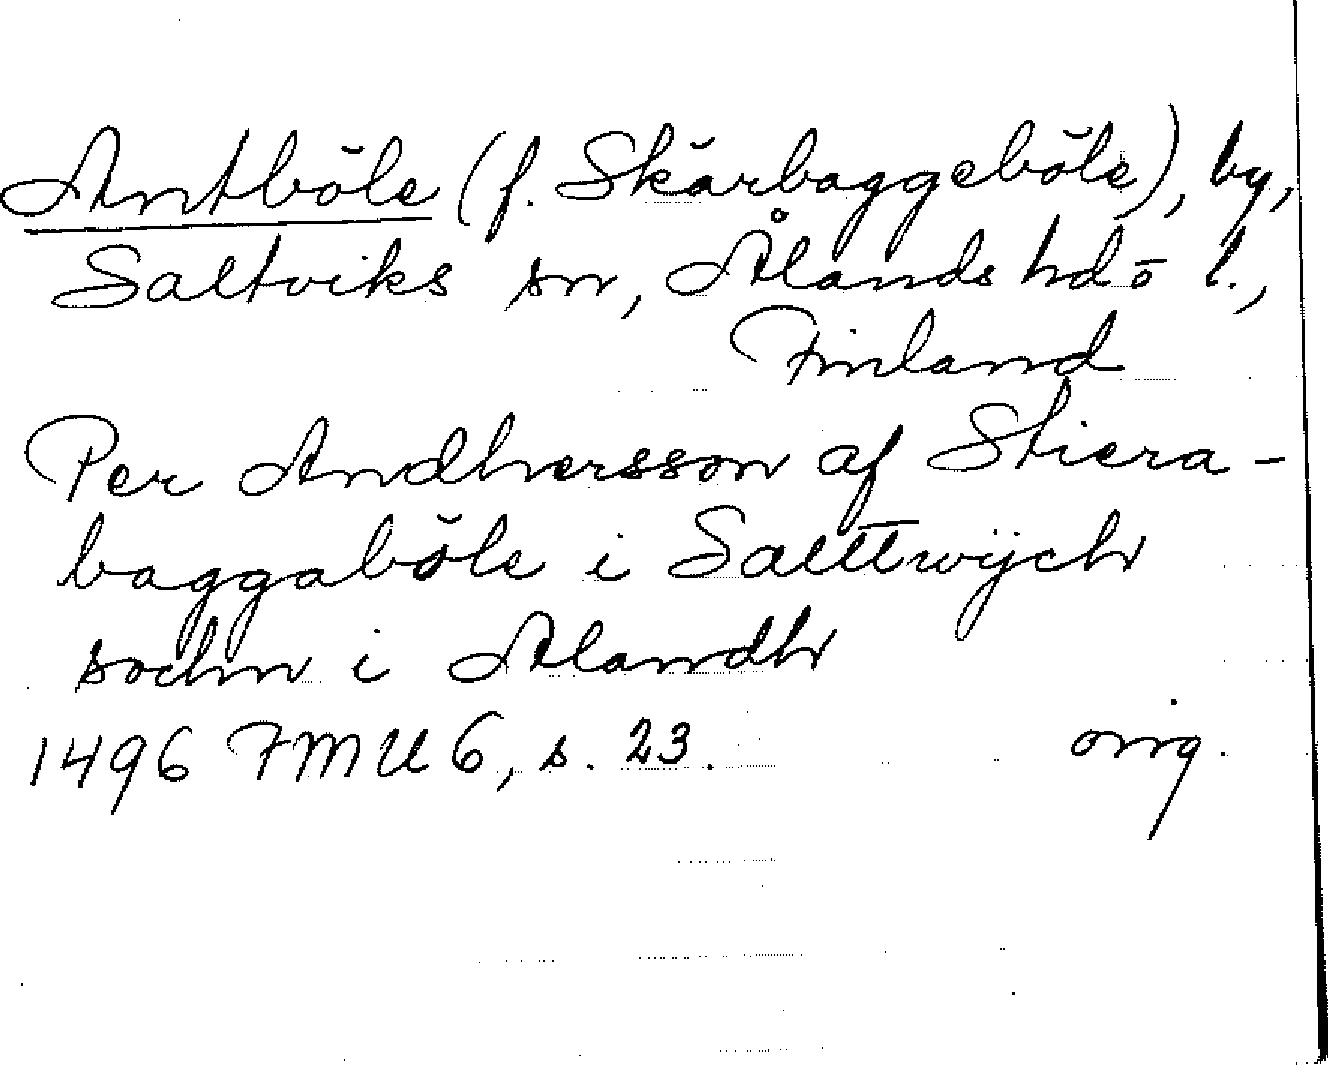 Antböle (f. Skarbaggeböle), by,
Saltviks sn, Ålands hd o l.,
Finland
Per Andhersson af Skiera-
baggaböle i Salttwijch
sochn i Alandh
1496 FMU 6, s. 23. orig.